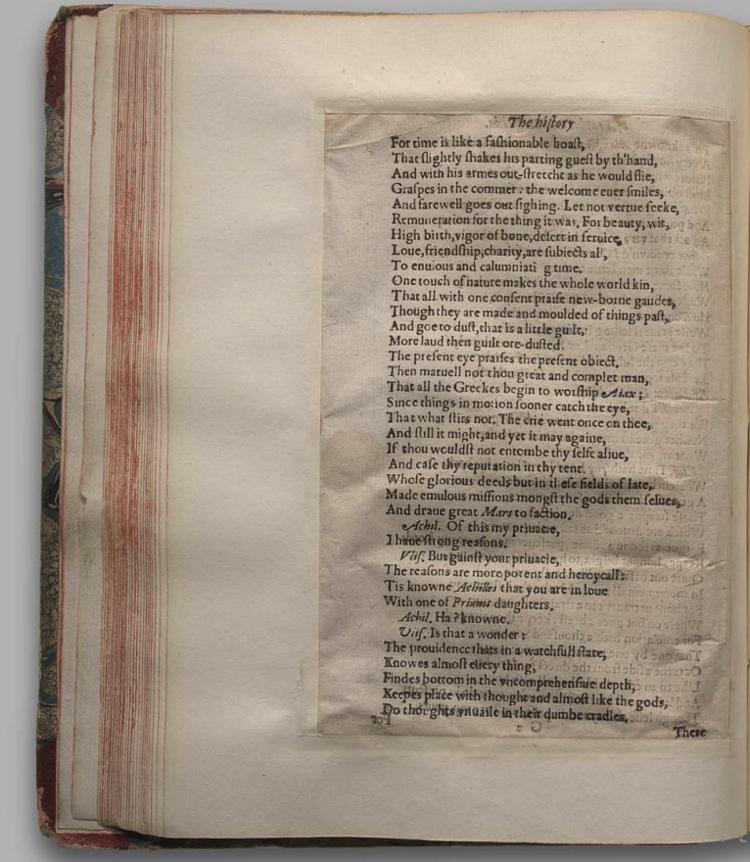 The hiſtory
For time is like a faſhionable hoaſt,
That ſlightly ſhakes his parting gueſt by th'hand,
And with his armes out-ſtretcht as he would flie,
Graſpes in the commer: the welcome euer ſmiles,
And farewell goes out ſighing. Let not vertue ſeeke,
Remuneration for the thing it was. For beauty, wit,
High birth, vigor of bone, deſert in ſeruice,
Loue, friendſhip, charity, are ſubiects al',
To enuious and calumniati g time.
One touch of nature makes the whole world kin,
That all with one conſent praiſe new-borne gaudes,
Though they are made and moulded of things paſt,
And goe to duſt, that is a little guilt,
More laud then guilt ore-duſted.
The preſent eye praiſes the preſent obiect.
Then maruell not thou great and complet man,
That all the Greekes begin to worſhip Aiax;
Since things in motion ſooner catch the eye,
That what ſtirs not. The crie went once on thee,
And ſtill it might, and yet it may againe,
If thou wouldſt not entombe thy ſelfe aliue,
And caſe thy reputation in thy tent.
Whoſe glorious deeds but in theſe fields of late,
Made emulous miſſions mongſt the gods them ſelues,
And draue great Mars to faction.
Achil. Of this my priuacie,
I haue ſtrong reaſons.
Vliſ. But gainſt your priuacie,
The reaſons are more potent and heroycall:
Tis knowne Achilles that you are in loue
With one of Priams daughters.
Achil. Ha? knowne.
Vliſ. Is that a wonder:
The prouidence thats in a watchfull ſtate,
Knowes almoſt euery thing,
Findes bottom in the vncomprehenſiue depth,
Keepes place with thought and almoſt like the gods,
Do thoughts vnuaile in their dumbe cradles,
There